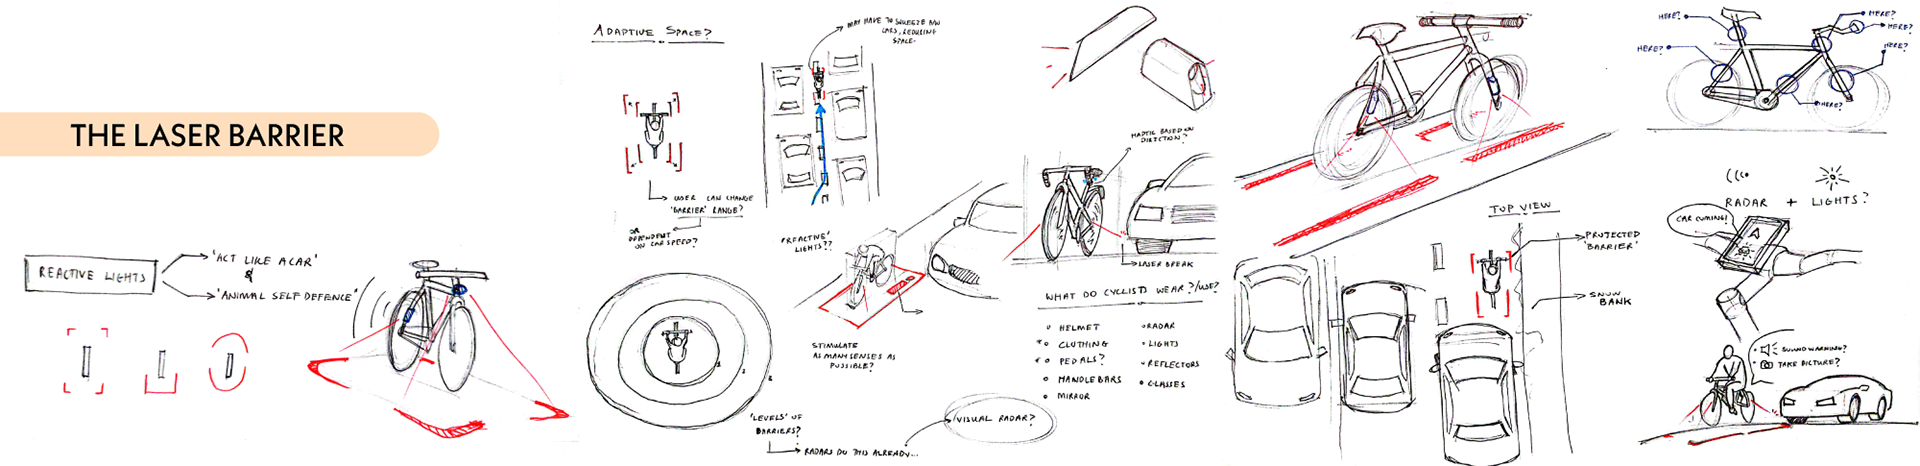 THE LASER BARRIER
REACTIVE LIGHTS
'ACT LIKE A CAR'
&
'ANIMAL SELF DEFENCE'
ADAPTIVE SPACE?
MAY HAVE TO SQUEEZE B/W
CARS, REDUCING
SPACE.
USER CAN CHANGE
'BARRIER' RANGE?
OR
DEPENDENT
ON CAR SPEED?
'REACTIVE'
LIGHTS??
STIMULATE
AS MANY SENSES AS
POSSIBLE?
'LEVELS' OF
BARRIERS?
RADARS DO THIS ALREADY...
VISUAL RADAR?
HAPTIC BASED ON
DIRECTION?
LASER BREAK
WHAT DO CYCLISTS WEAR?/USE?
HELMET
CLOTHING
PEDALS?
HANDLEBARS
MIRROR
RADAR
LIGHTS
REFLECTORS
GLASSES
TOP VIEW
PROTECTED
'BARRIER'
SNOW
BANK
HERE?
HERE?
HERE?
HERE?
HERE?
HERE?
RADAR + LIGHTS?
CAR COMING!
SOUND WARNING?
TAKE PICTURE?